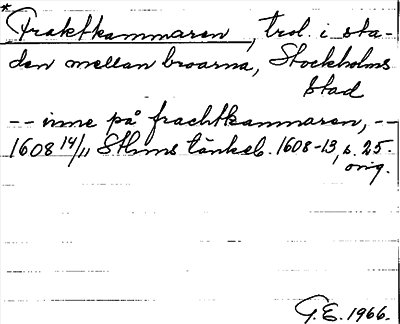 *
Fraktkammaren, trol. i sta-
den mellan broarna, Stockholms
stad
-- inne på frachtkammaren, --
1608 14/11 Sthms tänkeb. 1608-13, s. 25.
orig.
G.E. 1966.